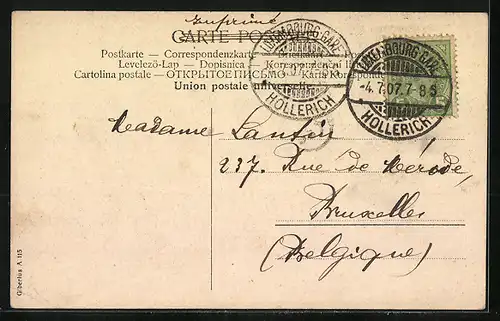 Imprimé
CARTE POSTALE
Postkarte — Correspondenzkarte — Briefkaart
Levelező-Lap — Dopisnica — Korespondenční lístek
Cartolina postale — ОТКРЫТОЕ ПИСЬМО — Karta Korespondencyjna
Union postale universelle
LUXEMBOURG-GARE
HOLLERICH
LUXEMBOURG-GARE
-4.7.07.7-8S
HOLLERICH
Madame Lantin
237, Rue de Mérode,
Bruxelles
(Belgique)
Gibertus A 115